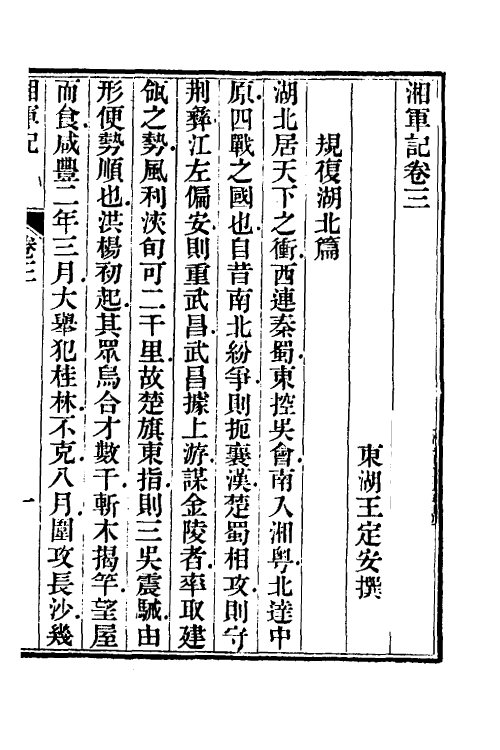 湘軍記卷三
東湖王定安撰
規復湖北篇
湖北居天下之衝西連秦蜀東控吳會南入湘粤北達中
原四戰之國也自昔南北紛爭則扼襄漢楚蜀相攻則守
荆彝江左偏安則重武昌武昌據上游謀金陵者率取建
瓴之勢風利浹旬可二千里故楚旗東指則三吳震駴由
形便勢順也洪楊初起其眾烏合才數千斬木揭竿望屋
而食咸豐二年三月大舉犯桂林不克八月圍攻長沙幾
湘軍記
卷三
一